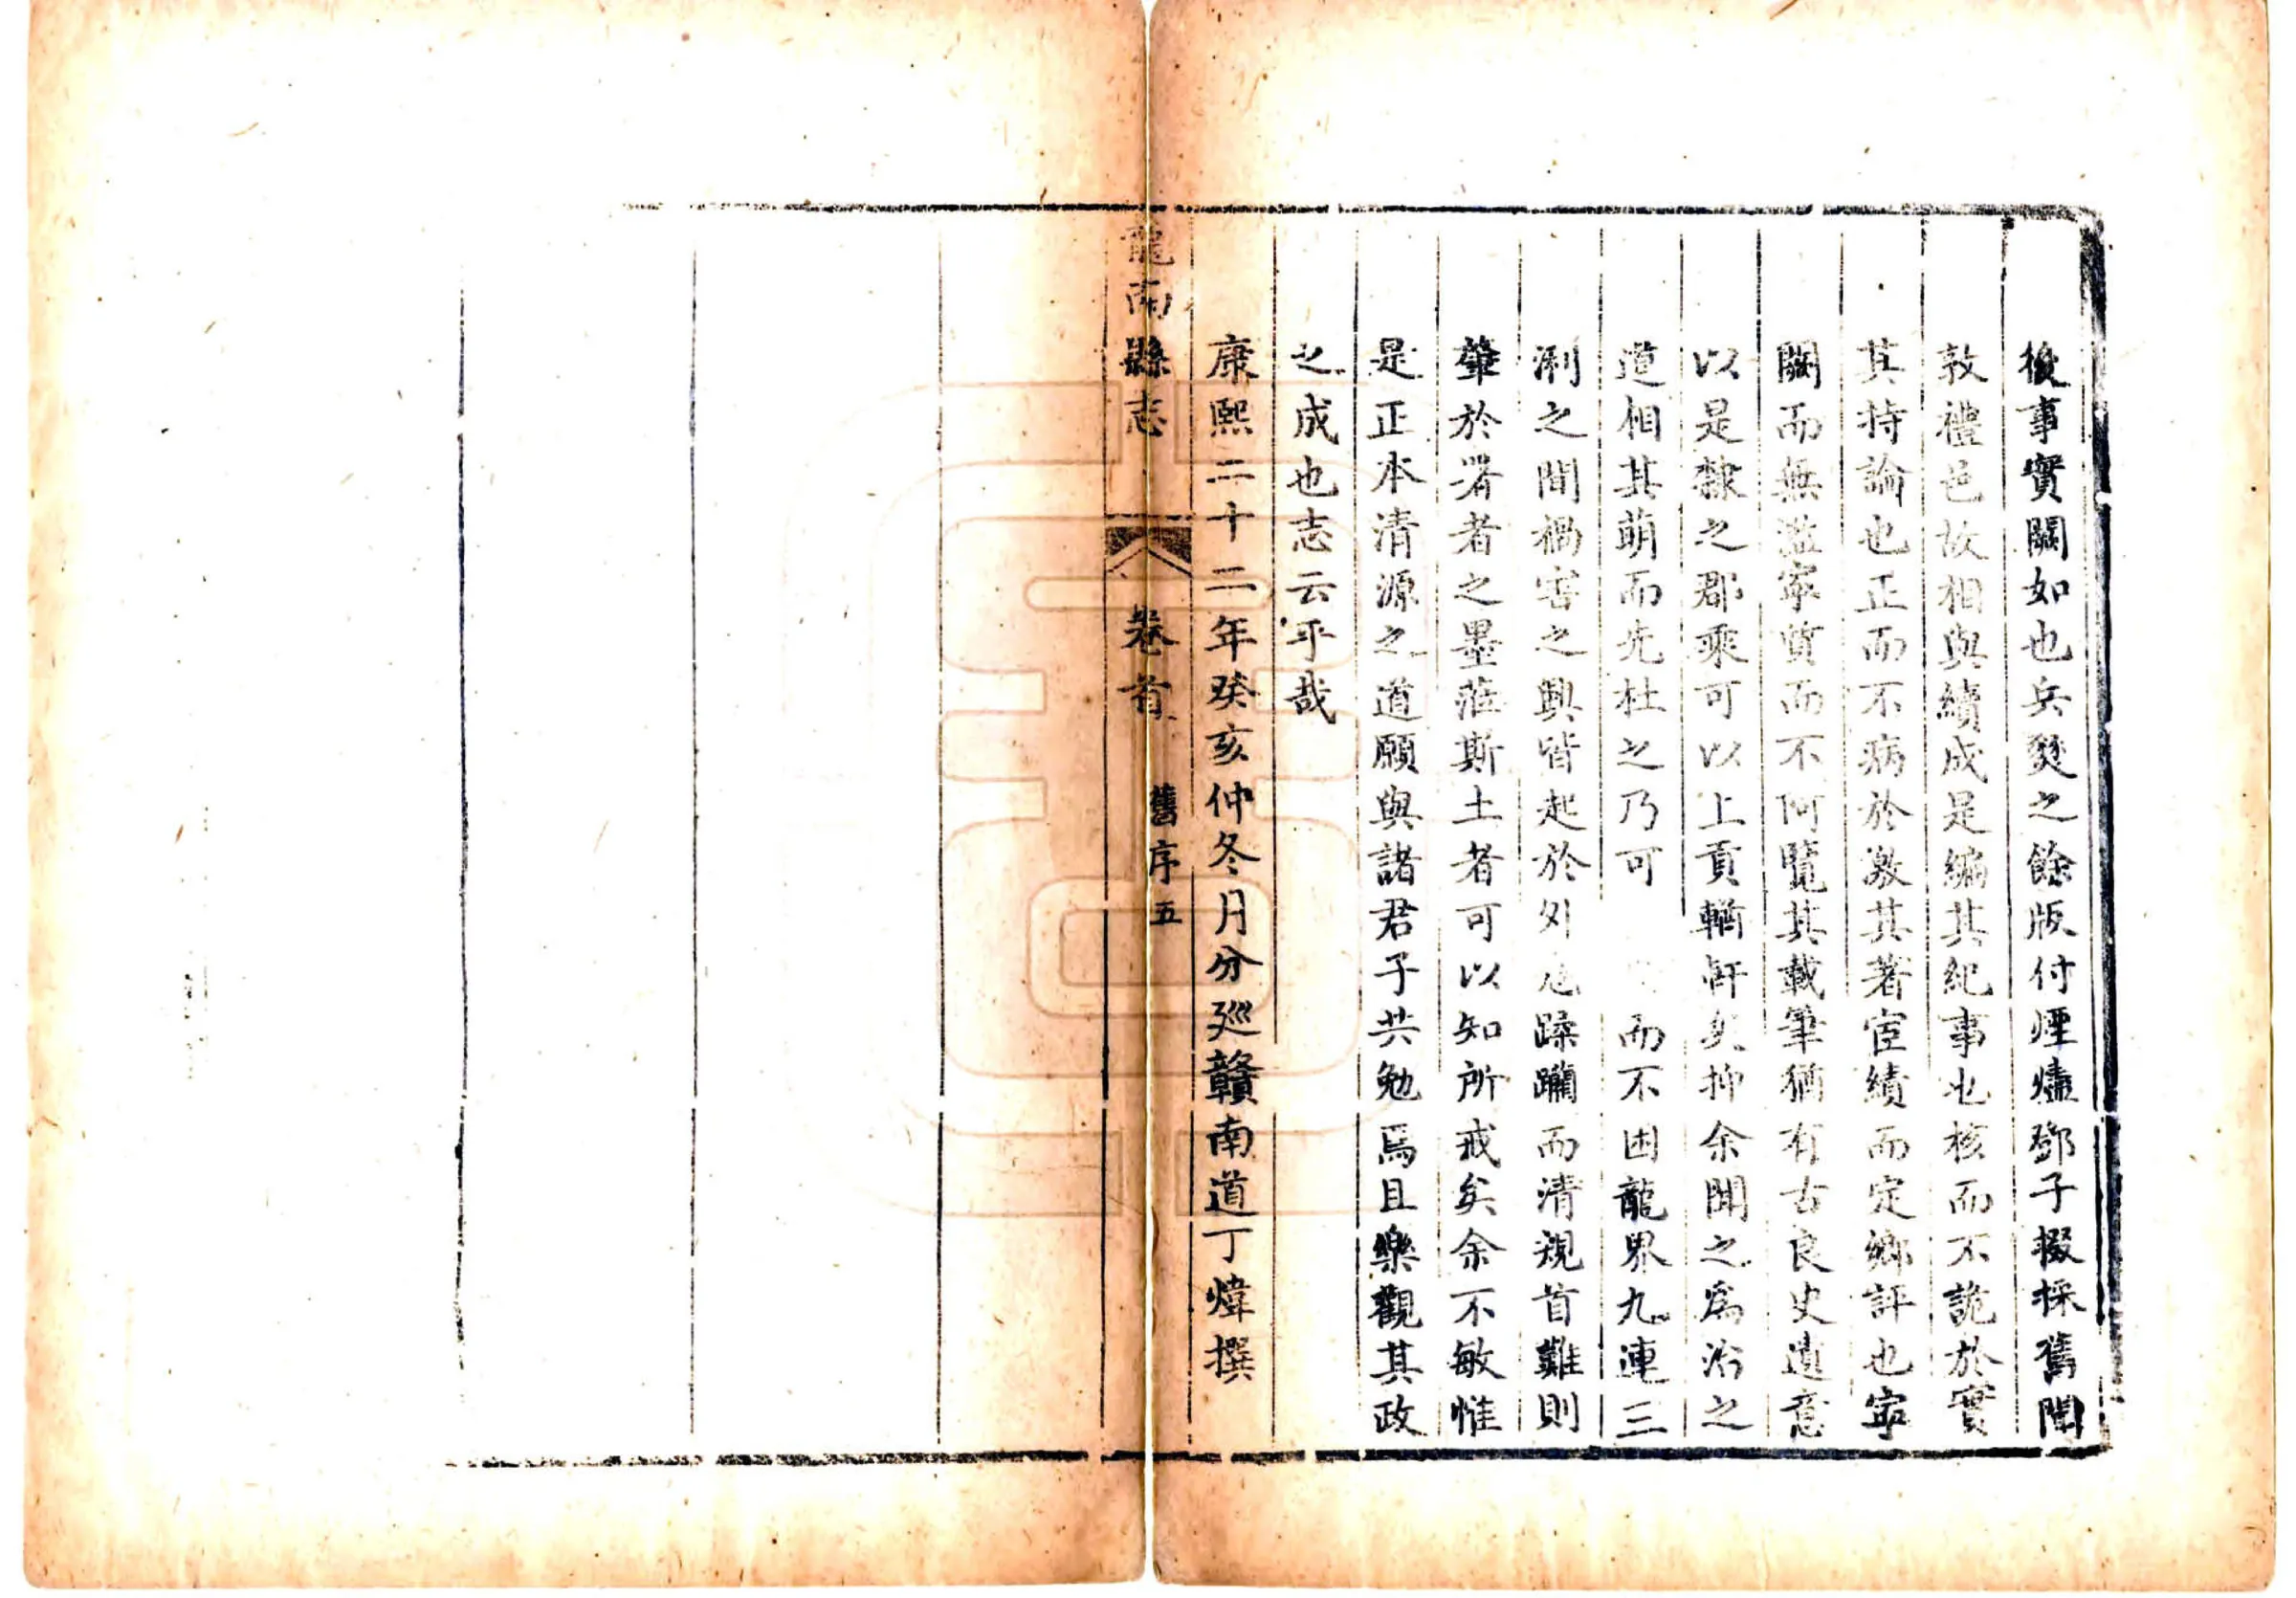 後事實闕如也兵燹之餘版付煙燼鄧子掇採舊聞
敦禮邑故相與續成是編其紀事也核而不詭於實
其持論也正而不病於激其著宦績而定鄉評也寧
闕而無濫寧質而不阿覽其載筆猶有古良史遺意
以是隸之郡乘可以上貢輶軒矣抑余聞之為治之
道相其萌而先杜之乃可而不困龍界九連三
浰之間禍害之興皆起於外冦蹂躪而清規首難則
肇於署者之墨蒞斯土者可以知所戒矣余不敏惟
是正本清源之道願與諸君子共勉焉且樂觀其政
之成也志云乎哉
康熙二十二年癸亥仲冬月分廵贛南道丁煒撰
龍南縣志 卷首 舊序 五